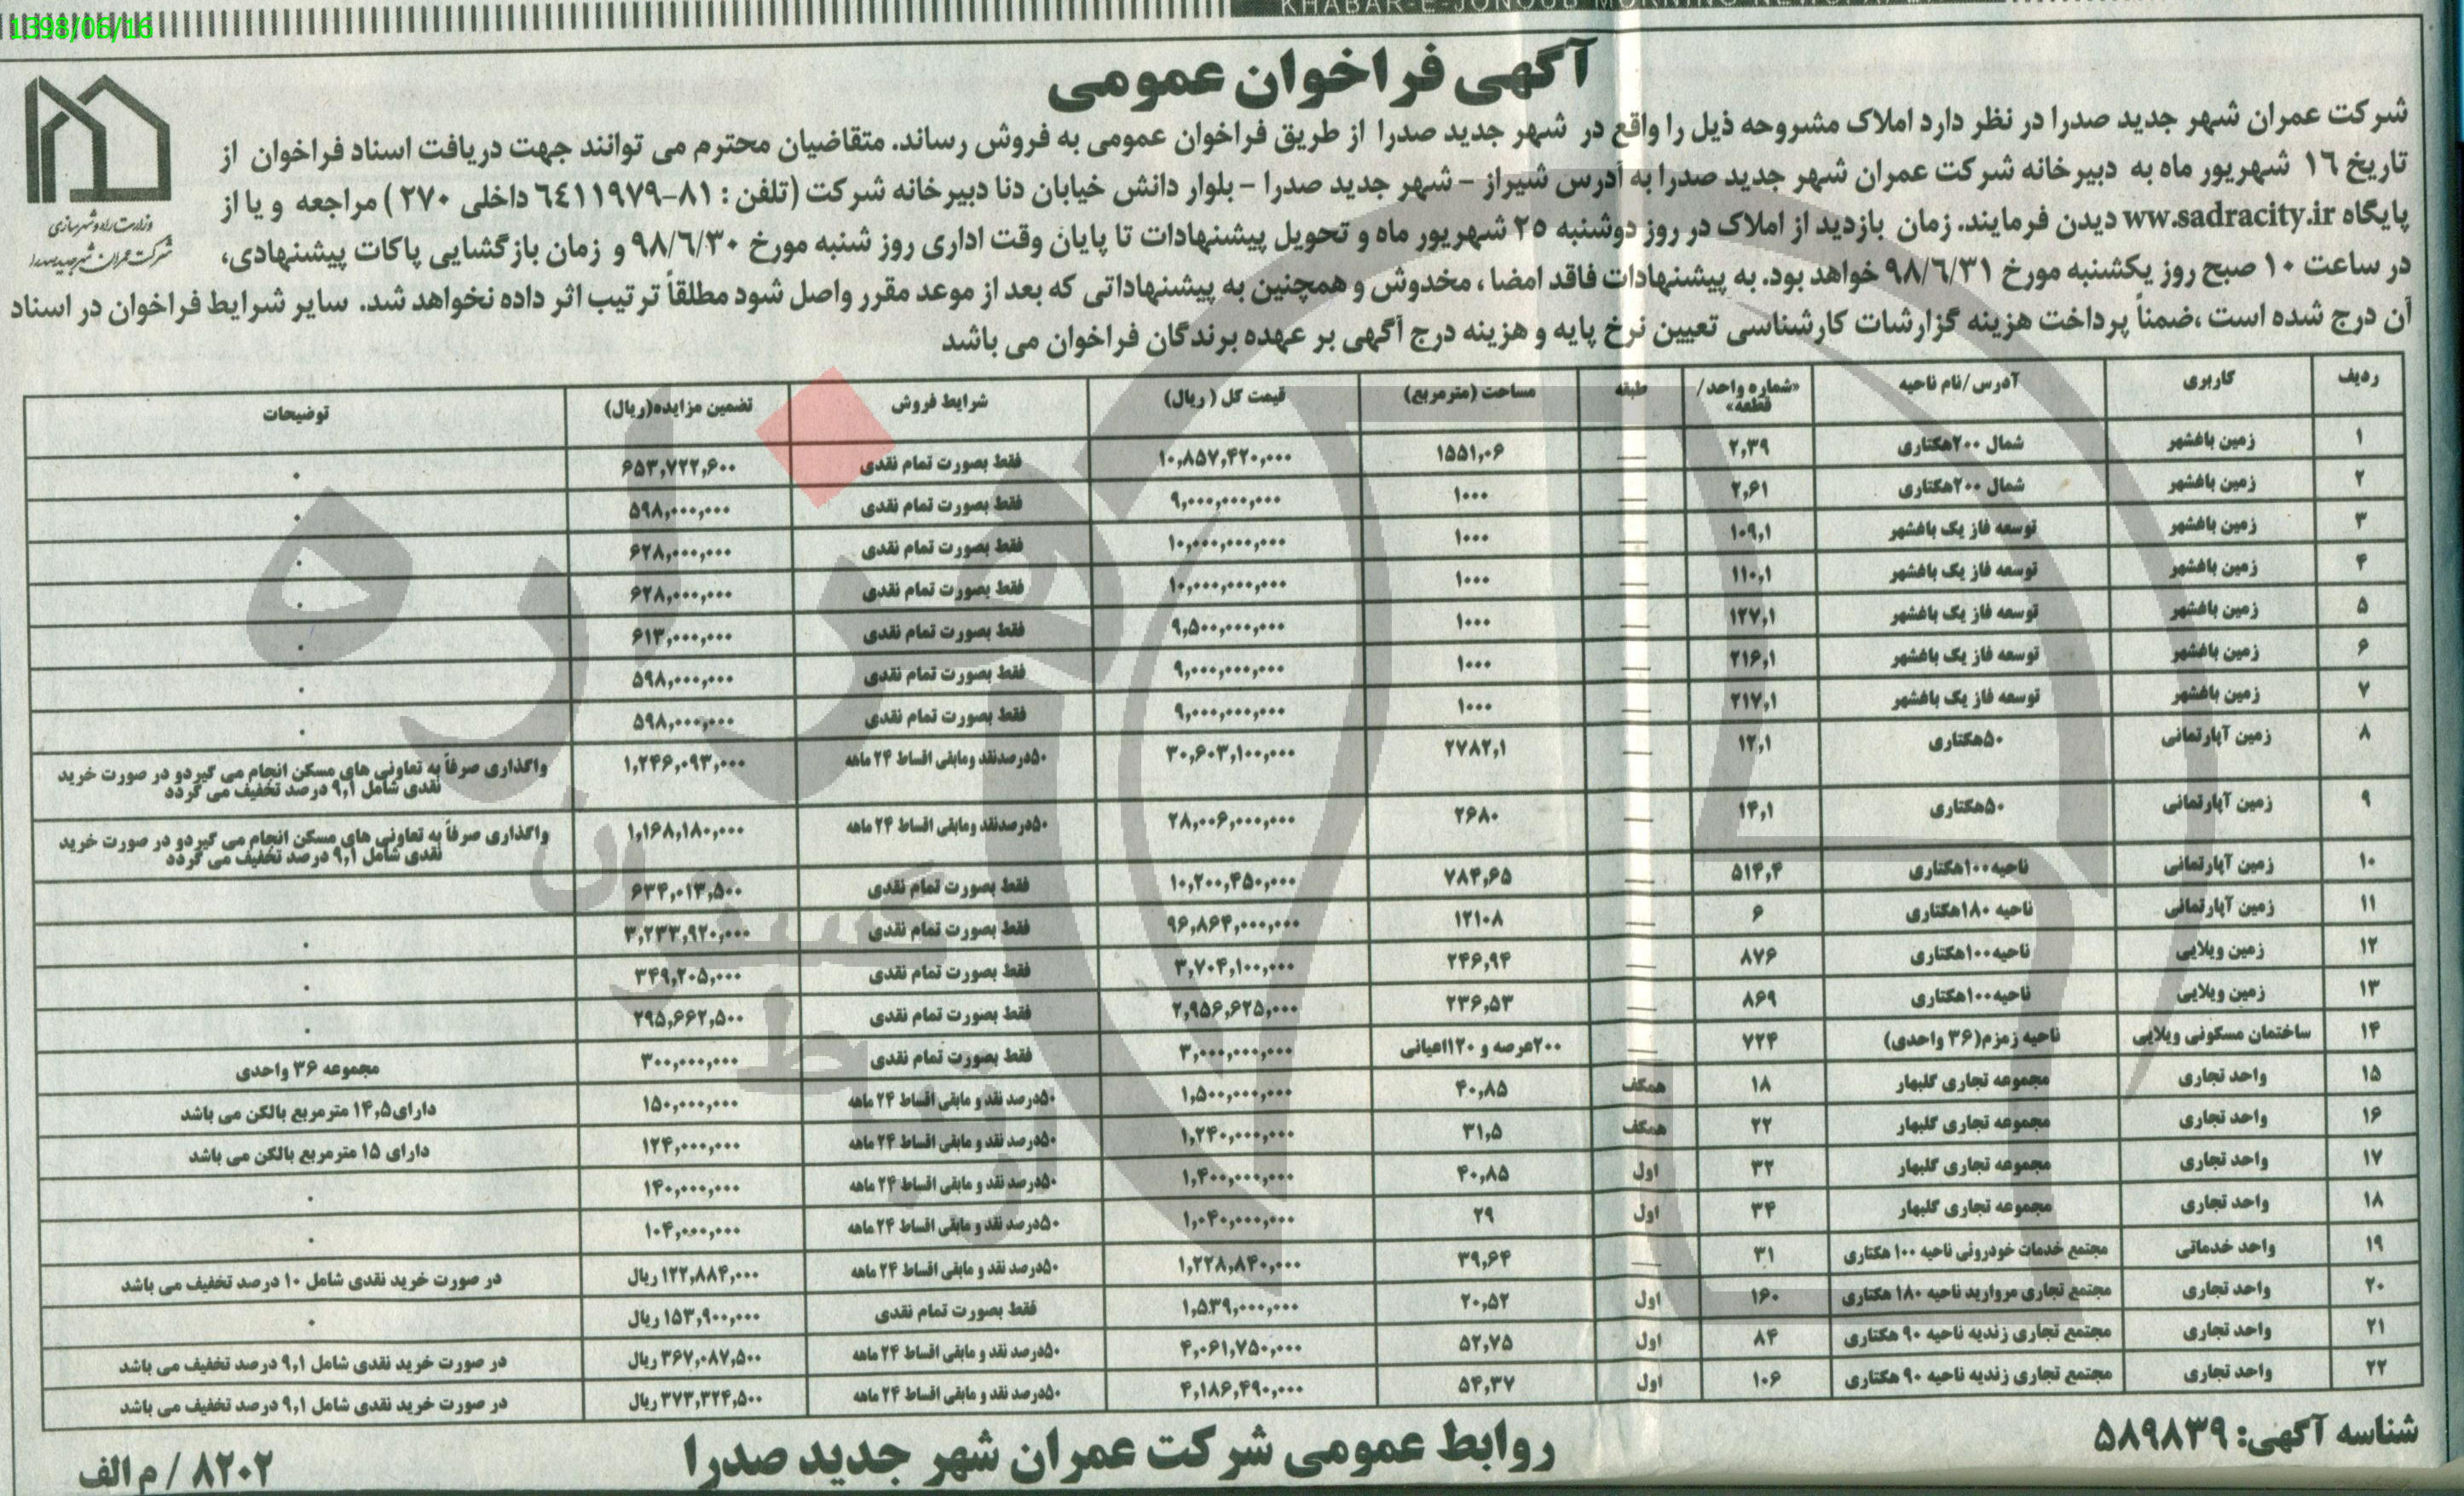 1398/06/16
KHABAR-E-JONOUB MORNING NEWSPAPER
آگهی فراخوان عمومی
وزارت راه و شهرسازی
شرکت عمران شهر جدید صدرا
شرکت عمران شهر جدید صدرا در نظر دارد املاک مشروحه ذیل را واقع در شهر جدید صدرا از طریق فراخوان عمومی به فروش رساند. متقاضیان محترم می توانند جهت دریافت اسناد فراخوان از
تاریخ ١٦ شهریور ماه به دبیرخانه شرکت عمران شهر جدید صدرا به آدرس شیراز - شهر جدید صدرا - بلوار دانش خیابان دنا دبیرخانه شرکت (تلفن : ٨١-٦٤١١٩٧٩ داخلی ٢٧٠ ) مراجعه و یا از
پایگاه ww.sadracity.ir دیدن فرمایند. زمان بازدید از املاک در روز دوشنبه ٢٥ شهریور ماه و تحویل پیشنهادات تا پایان وقت اداری روز شنبه مورخ ٩٨/٦/٣٠ و زمان بازگشایی پاکات پیشنهادی،
در ساعت ١٠ صبح روز یکشنبه مورخ ٩٨/٦/٣١ خواهد بود. به پیشنهادات فاقد امضا ، مخدوش و همچنین به پیشنهاداتی که بعد از موعد مقرر واصل شود مطلقاً ترتیب اثر داده نخواهد شد. سایر شرایط فراخوان در اسناد
آن درج شده است ،ضمناً پرداخت هزینه گزارشات کارشناسی تعیین نرخ پایه و هزینه درج آگهی بر عهده برندگان فراخوان می باشد
ردیف کاربری آدرس/نام ناحیه «شماره واحد/قطعه» طبقه مساحت (مترمربع) قیمت کل ( ریال) شرایط فروش تضمین مزایده(ریال) توضیحات
۱ زمین باغشهر شمال ۲۰۰هکتاری ۲,۳۹ __ ۱۵۵۱,۰۶ ۱۰,۸۵۷,۴۲۰,۰۰۰ فقط بصورت تمام نقدی ۶۵۳,۷۲۲,۶۰۰ .
۲ زمین باغشهر شمال ۲۰۰هکتاری ۲,۶۱ __ ۱۰۰۰ ۹,۰۰۰,۰۰۰,۰۰۰ فقط بصورت تمام نقدی ۵۹۸,۰۰۰,۰۰۰ .
۳ زمین باغشهر توسعه فاز یک باغشهر ۱۰۹,۱ __ ۱۰۰۰ ۱۰,۰۰۰,۰۰۰,۰۰۰ فقط بصورت تمام نقدی ۶۲۸,۰۰۰,۰۰۰ .
۴ زمین باغشهر توسعه فاز یک باغشهر ۱۱۰,۱ __ ۱۰۰۰ ۱۰,۰۰۰,۰۰۰,۰۰۰ فقط بصورت تمام نقدی ۶۲۸,۰۰۰,۰۰۰ .
۵ زمین باغشهر توسعه فاز یک باغشهر ۱۲۷,۱ __ ۱۰۰۰ ۹,۵۰۰,۰۰۰,۰۰۰ فقط بصورت تمام نقدی ۶۱۳,۰۰۰,۰۰۰ .
۶ زمین باغشهر توسعه فاز یک باغشهر ۲۱۶,۱ __ ۱۰۰۰ ۹,۰۰۰,۰۰۰,۰۰۰ فقط بصورت تمام نقدی ۵۹۸,۰۰۰,۰۰۰ .
۷ زمین باغشهر توسعه فاز یک باغشهر ۲۱۷,۱ __ ۱۰۰۰ ۹,۰۰۰,۰۰۰,۰۰۰ فقط بصورت تمام نقدی ۵۹۸,۰۰۰,۰۰۰ .
۸ زمین آپارتمانی ۵۰هکتاری ۱۲,۱ __ ۲۷۸۲,۱ ۳۰,۶۰۳,۱۰۰,۰۰۰ ۵۰درصدنقد ومابقی اقساط ۲۴ ماهه ۱,۲۴۶,۰۹۳,۰۰۰ واگذاری صرفاً به تعاونی های مسکن انجام می گیردو در صورت خرید
نقدی شامل ۹,۱ درصد تخفیف می گردد
۹ زمین آپارتمانی ۵۰هکتاری ۱۴,۱ __ ۲۶۸۰ ۲۸,۰۰۶,۰۰۰,۰۰۰ ۵۰درصدنقد ومابقی اقساط ۲۴ ماهه ۱,۱۶۸,۱۸۰,۰۰۰ واگذاری صرفاً به تعاونی های مسکن انجام می گیردو در صورت خرید
نقدی شامل ۹,۱ درصد تخفیف می گردد
۱۰ زمین آپارتمانی ناحیه۱۰۰هکتاری ۵۱۴,۴ __ ۷۸۴,۶۵ ۱۰,۲۰۰,۴۵۰,۰۰۰ فقط بصورت تمام نقدی ۶۳۴,۰۱۳,۵۰۰
۱۱ زمین آپارتمانی ناحیه ۱۸۰هکتاری ۶ __ ۱۲۱۰۸ ۹۶,۸۶۴,۰۰۰,۰۰۰ فقط بصورت تمام نقدی ۳,۲۳۳,۹۲۰,۰۰۰ .
۱۲ زمین ویلایی ناحیه۱۰۰هکتاری ۸۷۶ __ ۲۴۶,۹۴ ۳,۷۰۴,۱۰۰,۰۰۰ فقط بصورت تمام نقدی ۳۴۹,۲۰۵,۰۰۰ .
۱۳ زمین ویلایی ناحیه۱۰۰هکتاری ۸۶۹ __ ۲۳۶,۵۳ ۲,۹۵۶,۶۲۵,۰۰۰ فقط بصورت تمام نقدی ۲۹۵,۶۶۲,۵۰۰ .
۱۴ ساختمان مسکونی ویلایی ناحیه زمزم(۳۶ واحدی) ۷۲۴ __ ۲۰۰عرصه و ۱۲۰اعیانی ۳,۰۰۰,۰۰۰,۰۰۰ فقط بصورت تمام نقدی ۳۰۰,۰۰۰,۰۰۰ مجموعه ۳۶ واحدی
۱۵ واحد تجاری مجموعه تجاری گلبهار ۱۸ همکف ۴۰,۸۵ ۱,۵۰۰,۰۰۰,۰۰۰ ۵۰درصد نقد و مابقی اقساط ۲۴ ماهه ۱۵۰,۰۰۰,۰۰۰ دارای۱۴,۵ مترمربع بالکن می باشد
۱۶ واحد تجاری مجموعه تجاری گلبهار ۲۲ همکف ۳۱,۵ ۱,۲۴۰,۰۰۰,۰۰۰ ۵۰درصد نقد و مابقی اقساط ۲۴ ماهه ۱۲۴,۰۰۰,۰۰۰ دارای ۱۵ مترمربع بالکن می باشد
۱۷ واحد تجاری مجموعه تجاری گلبهار ۳۲ اول ۴۰,۸۵ ۱,۴۰۰,۰۰۰,۰۰۰ ۵۰درصد نقد و مابقی اقساط ۲۴ ماهه ۱۴۰,۰۰۰,۰۰۰ .
۱۸ واحد تجاری مجموعه تجاری گلبهار ۳۴ اول ۲۹ ۱,۰۴۰,۰۰۰,۰۰۰ ۵۰درصد نقد و مابقی اقساط ۲۴ ماهه ۱۰۴,۰۰۰,۰۰۰ .
۱۹ واحد خدماتی مجتمع خدمات خودروئی ناحیه ۱۰۰ هکتاری ۳۱ __ ۳۹,۶۴ ۱,۲۲۸,۸۴۰,۰۰۰ ۵۰درصد نقد و مابقی اقساط ۲۴ ماهه ۱۲۲,۸۸۴,۰۰۰ ریال در صورت خرید نقدی شامل ۱۰ درصد تخفیف می باشد
۲۰ واحد تجاری مجتمع تجاری مروارید ناحیه ۱۸۰ هکتاری ۱۶۰ اول ۲۰,۵۲ ۱,۵۳۹,۰۰۰,۰۰۰ فقط بصورت تمام نقدی ۱۵۳,۹۰۰,۰۰۰ ریال .
۲۱ واحد تجاری مجتمع تجاری زندیه ناحیه ۹۰ هکتاری ۸۴ اول ۵۲,۷۵ ۴,۰۶۱,۷۵۰,۰۰۰ ۵۰درصد نقد و مابقی اقساط ۲۴ ماهه ۳۶۷,۰۸۷,۵۰۰ ریال در صورت خرید نقدی شامل ۹,۱ درصد تخفیف می باشد
۲۲ واحد تجاری مجتمع تجاری زندیه ناحیه ۹۰ هکتاری ۱۰۶ اول ۵۴,۳۷ ۴,۱۸۶,۴۹۰,۰۰۰ ۵۰درصد نقد و مابقی اقساط ۲۴ ماهه ۳۷۳,۳۲۴,۵۰۰ ریال در صورت خرید نقدی شامل ۹,۱ درصد تخفیف می باشد
شناسه آگهی: ۵۸۹۸۳۹
روابط عمومی شرکت عمران شهر جدید صدرا
۸۲۰۲ / م الف